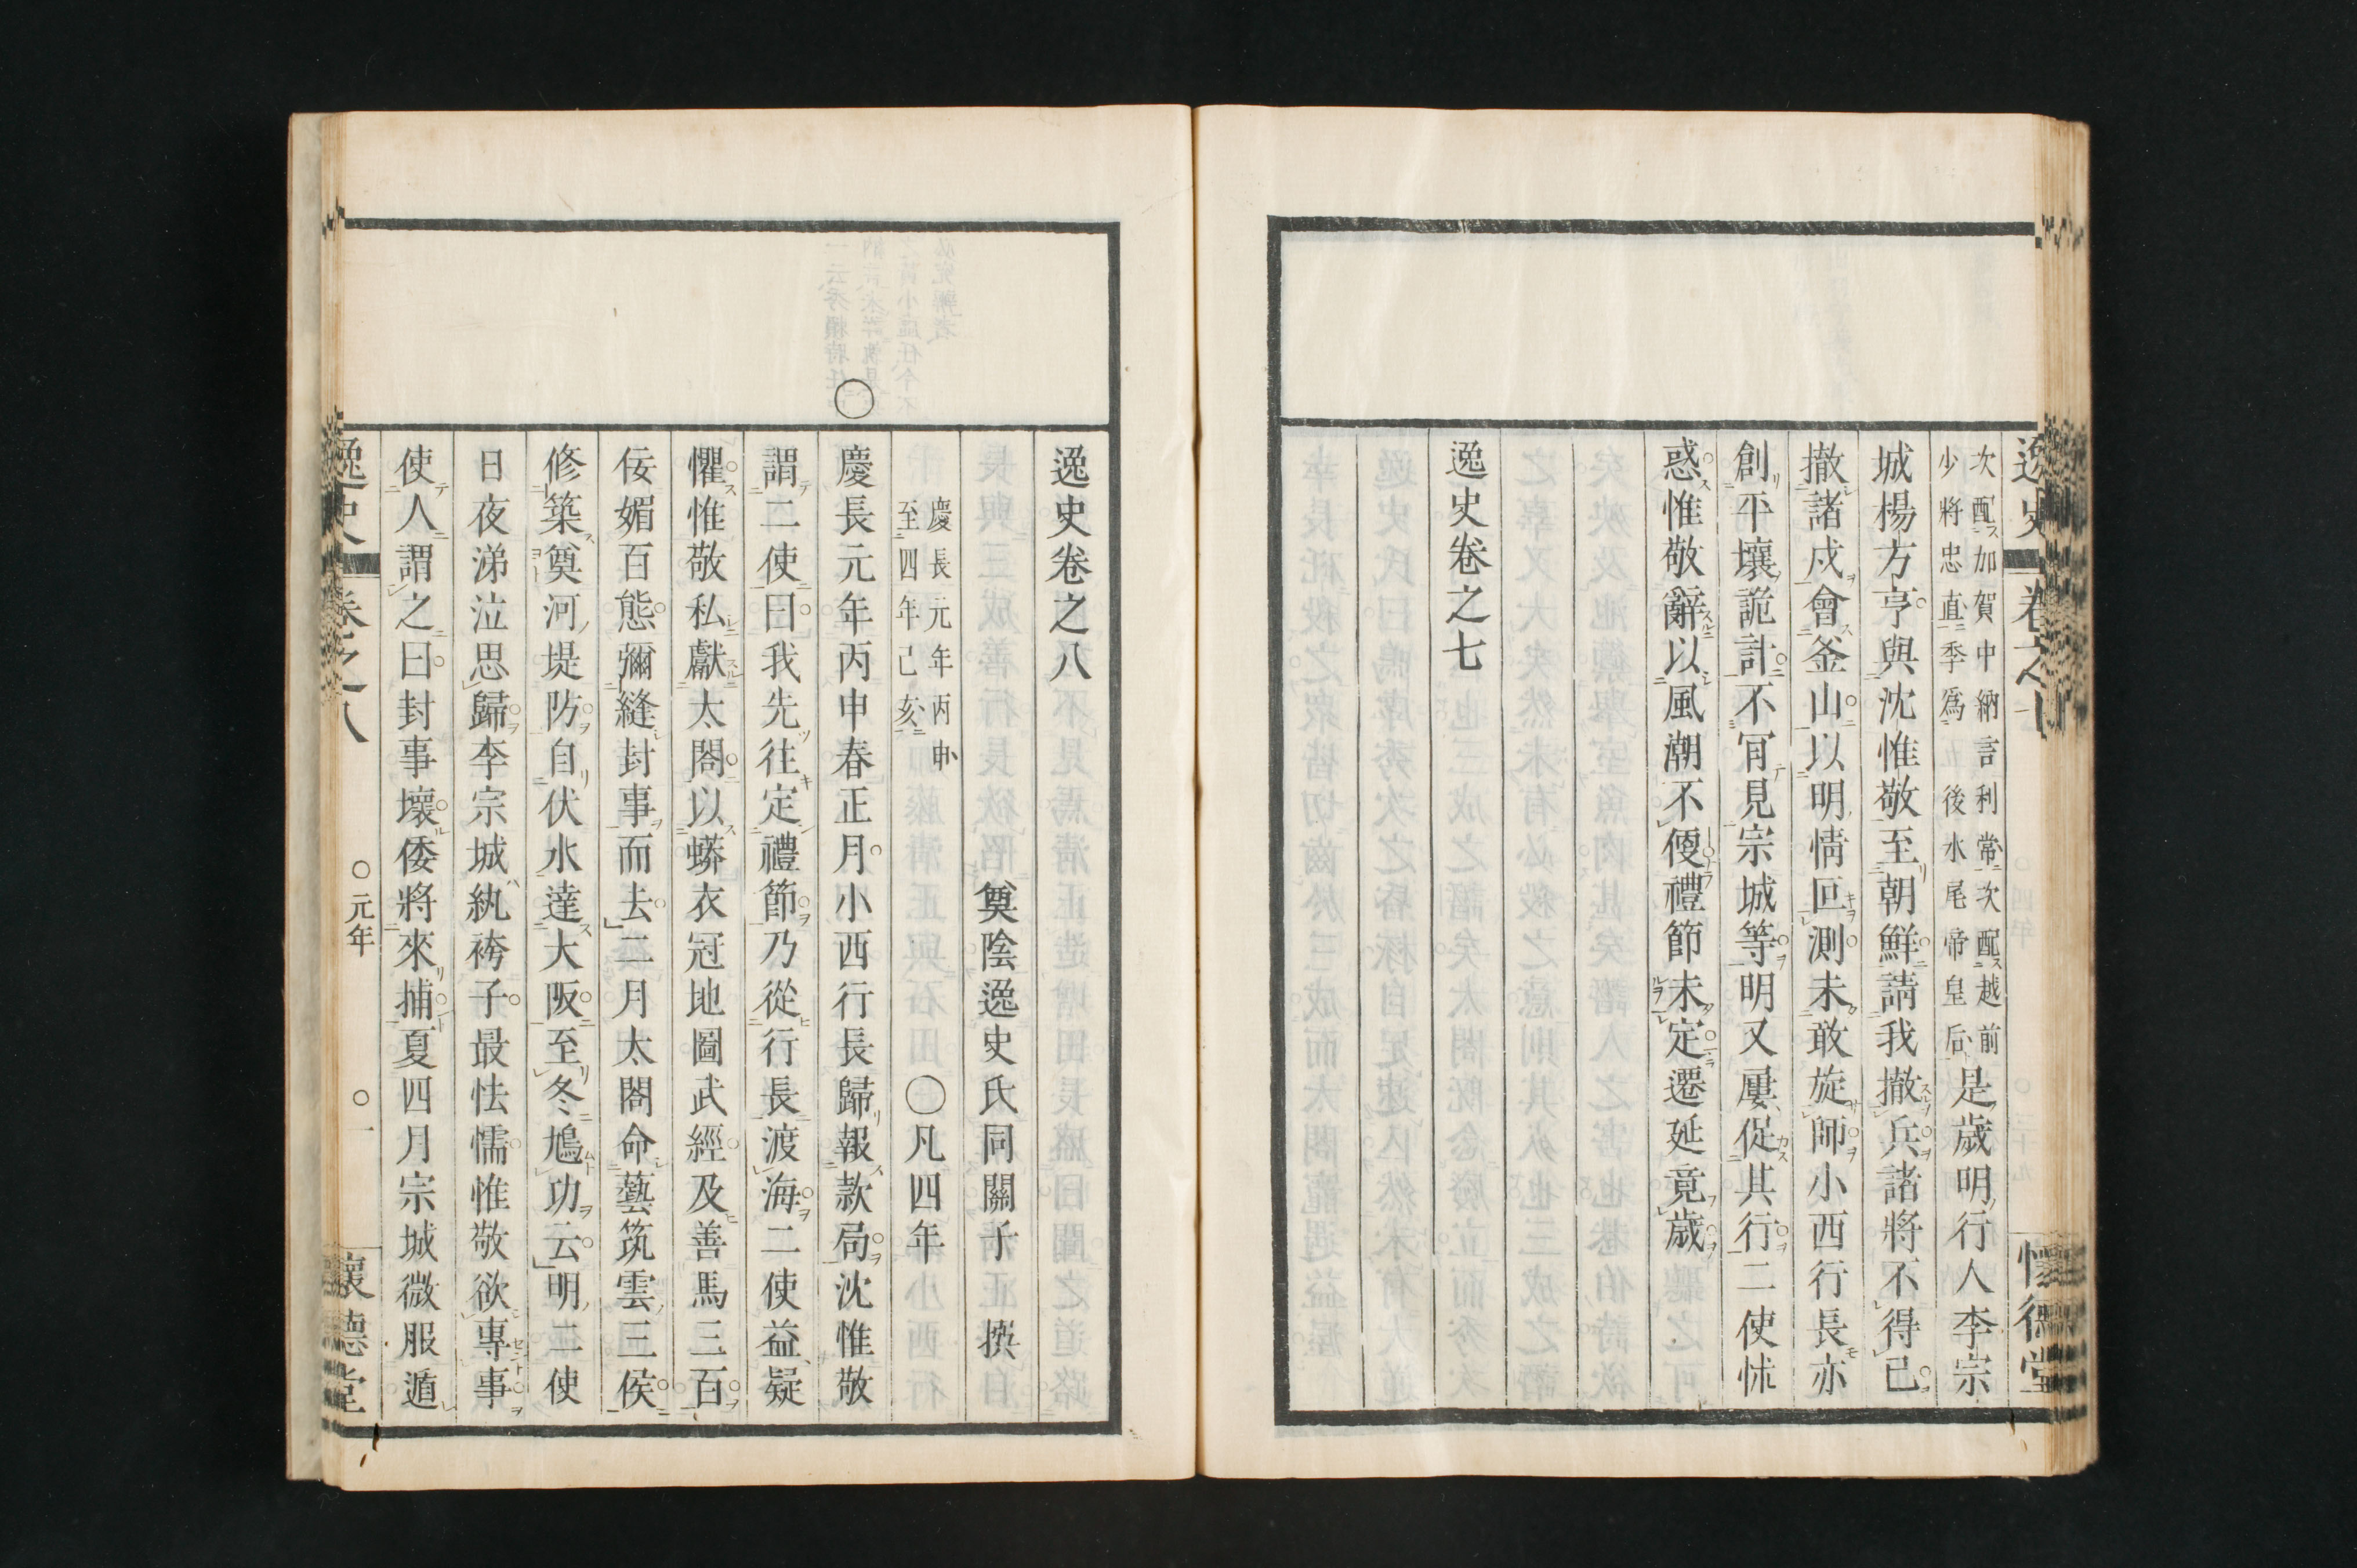 次配加賀中納言利常次配越前
少將忠直季爲後水尾帝皇后是歲明行人李宗
城楊方亨與沈惟敬至朝鮮請我撤兵諸將不得已
撤諸戍會釜山以明情叵測未敢旋師小西行長亦
創平壤詭計不肎見宗城等明又屢促其行二使怵
惑惟敬辭以風潮不便禮節未定遷延竟歲
逸史卷之七
懷德堂
逸史卷之八
奠陰逸史氏同關子撰
慶長元年丙申
至四年己亥
〇凡四年
〇
慶長元年丙申春正月小西行長歸報款局沈惟敬
謂二使曰我先往定禮節乃從行長渡海二使益疑
懼惟敬私獻太閤以蟒衣冠地圖武經及善馬三百
佞媚百態彌縫封事而去二月太閤命藝筑雲三侯
修築奠河堤防自伏水達大阪至冬鳩功云明二使
日夜涕泣思歸李宗城紈袴子最怯懦惟敬欲專事
使人謂之曰封事壞倭將來捕夏四月宗城微服遁
逸史 卷之八 〇元年 〇一 懷德堂